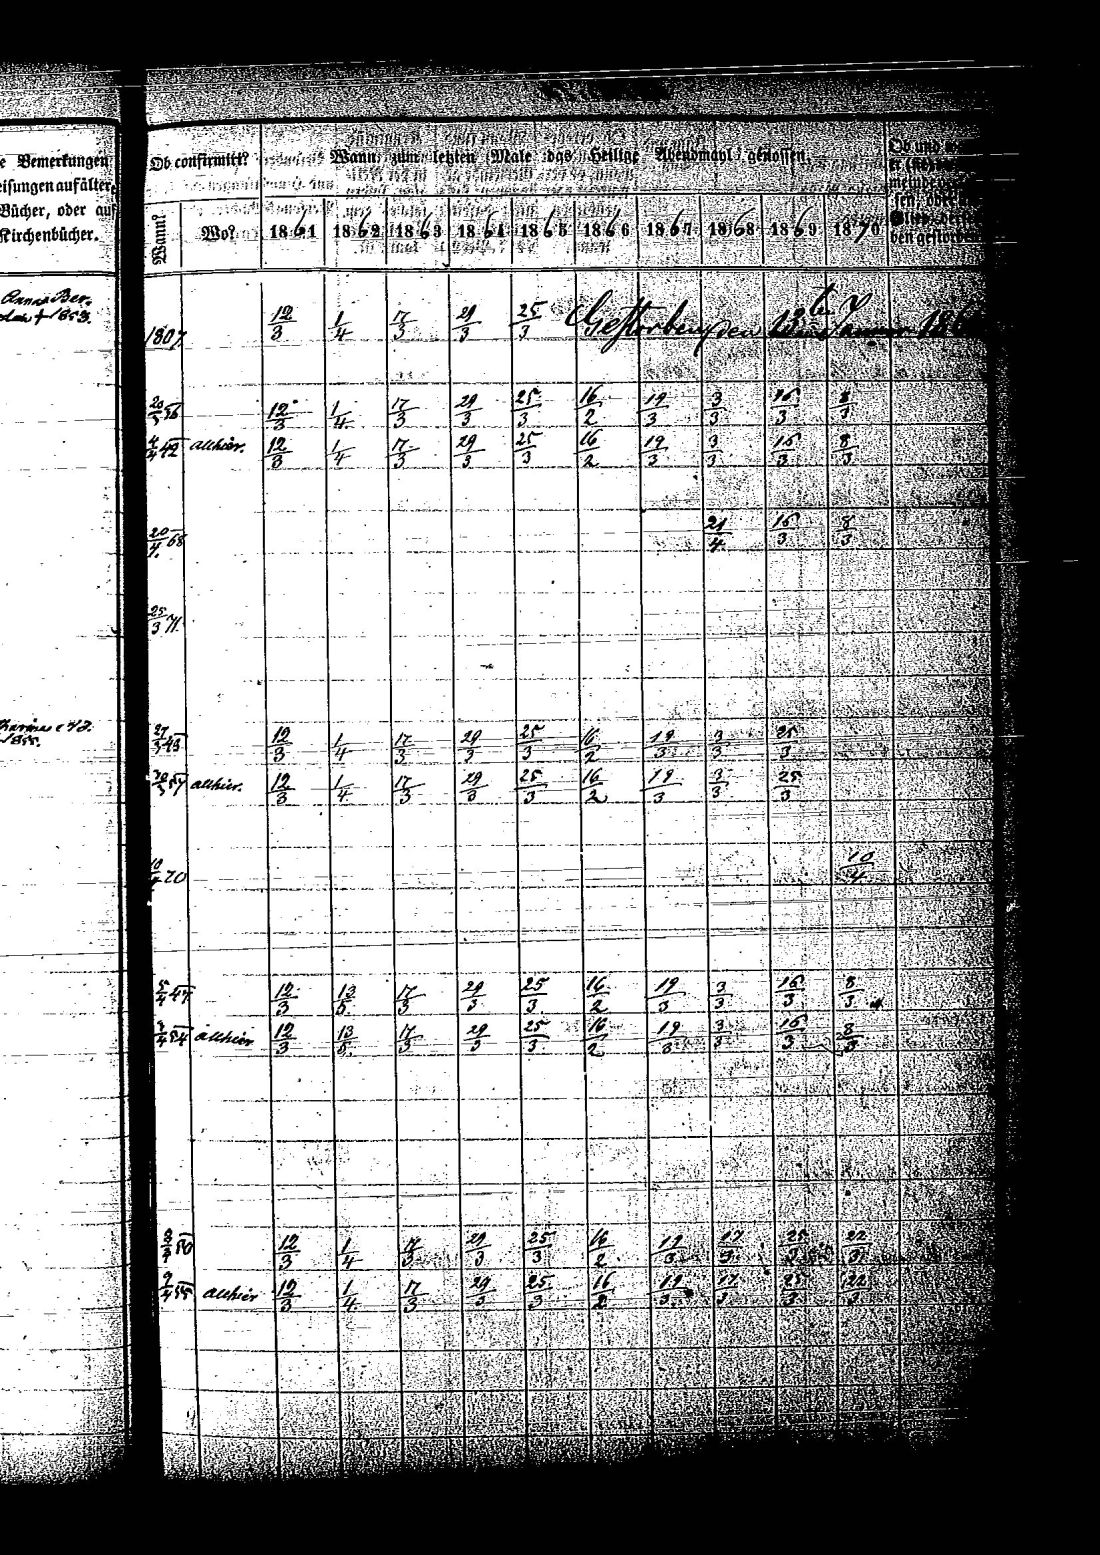 e Bemerkungen
eisungen auf älter
Bücher, oder auf
Kirchenbücher.
Ob confirmirt?
Wann zum letzten Male das Heilige Abendmahl genossen.
Ob und
Wann? Wo? 1861 1862 1863 1864 1865 1866 1867 1868 1869 1870
ben gestorben
Anna Ber.
† 1853.
1807 12/3 1/4 17/3 29/3 25/3 Gestorben den 13ten
20/3 56 12/3 1/4 17/3 29/3 25/3 16/2 19/3 3/3 16/3 8/3
4/4 42 allhier. 12/3 1/4 17/3 29/3 25/3 16/2 19/3 3/3 16/3 8/3
20/4 68 21/4 16/3 8/3
25/3 71.
1855.
27/3 43 12/3 1/4 17/3 29/3 25/3 16/2 19/3 3/3 25/3
57 allhier. 12/3 1/4 17/3 29/3 25/3 16/2 19/3 3/3 25/3
10/4 70 10/4
5/4 47 12/3 13/5 17/3 29/3 25/3 16/2 19/3 3/3 16/3 8/3
54 allhier 12/3 13/5. 17/3 29/3 25/3 16/2 19/3 3/3 16/3 8/3
50 12/3 1/4 17/3 29/3 25/3 16/2 19/3 17/3 25/3 22/3
9/4 55 allhier 12/3 1/4 17/3 29/3 25/3 16/2 19/3 17/3 25/3 22/3